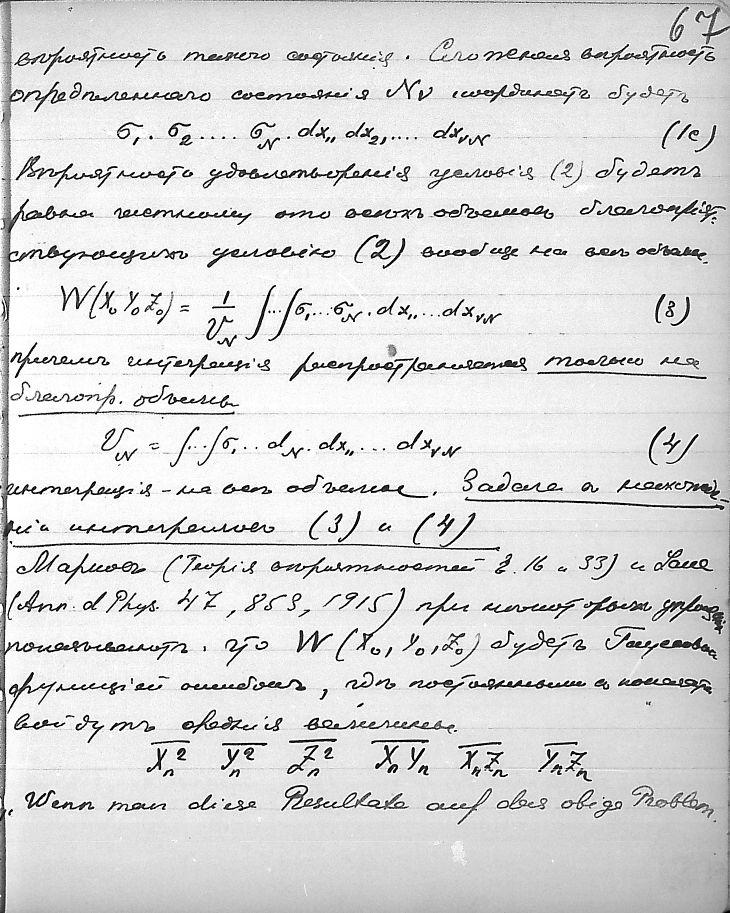 67
вѣроятность такого состоянія. Сложная вѣроятность
опредѣленнаго состоянія Nν координатъ будетъ
σ₁. σ₂ .... σ_N. dx₁₁ dx₂₁.... dx_νN (1c)
Вѣроятность удовлетворенія условія (2) будетъ
равна частному отъ всѣхъ объемовъ благопріят-
ствующихъ условію (2) вообще на весь объемъ.
W(X₀ Y₀ Z₀) = 1/V_N ∫...∫σ₁...σ_N. dx₁₁...dx_νN (3)
причемъ интеграція распространяется только на
благопр. объемы
V_N = ∫...∫σ₁...d_N. dx₁₁... dx_νN (4)
интеграція - на весь объемъ. Задача о нахожде-
ніи интеграловъ (3) и (4)
Марковъ (Теорія вѣроятностей §. 16 и 33) и Laue
(Ann. d Phys. 47, 853, 1915) при нѣкоторыхъ
показываютъ. что W(X₀, Y₀, Z₀) будетъ Гауссовой
функціей ошибокъ, гдѣ постоянными
войдутъ среднія величины.
X̅ₙ² Y̅ₙ² Z̅ₙ² X̅ₙY̅ₙ X̅ₙZ̅ₙ Y̅ₙZ̅ₙ
„Wenn man diese Resultate auf das obige Problem.